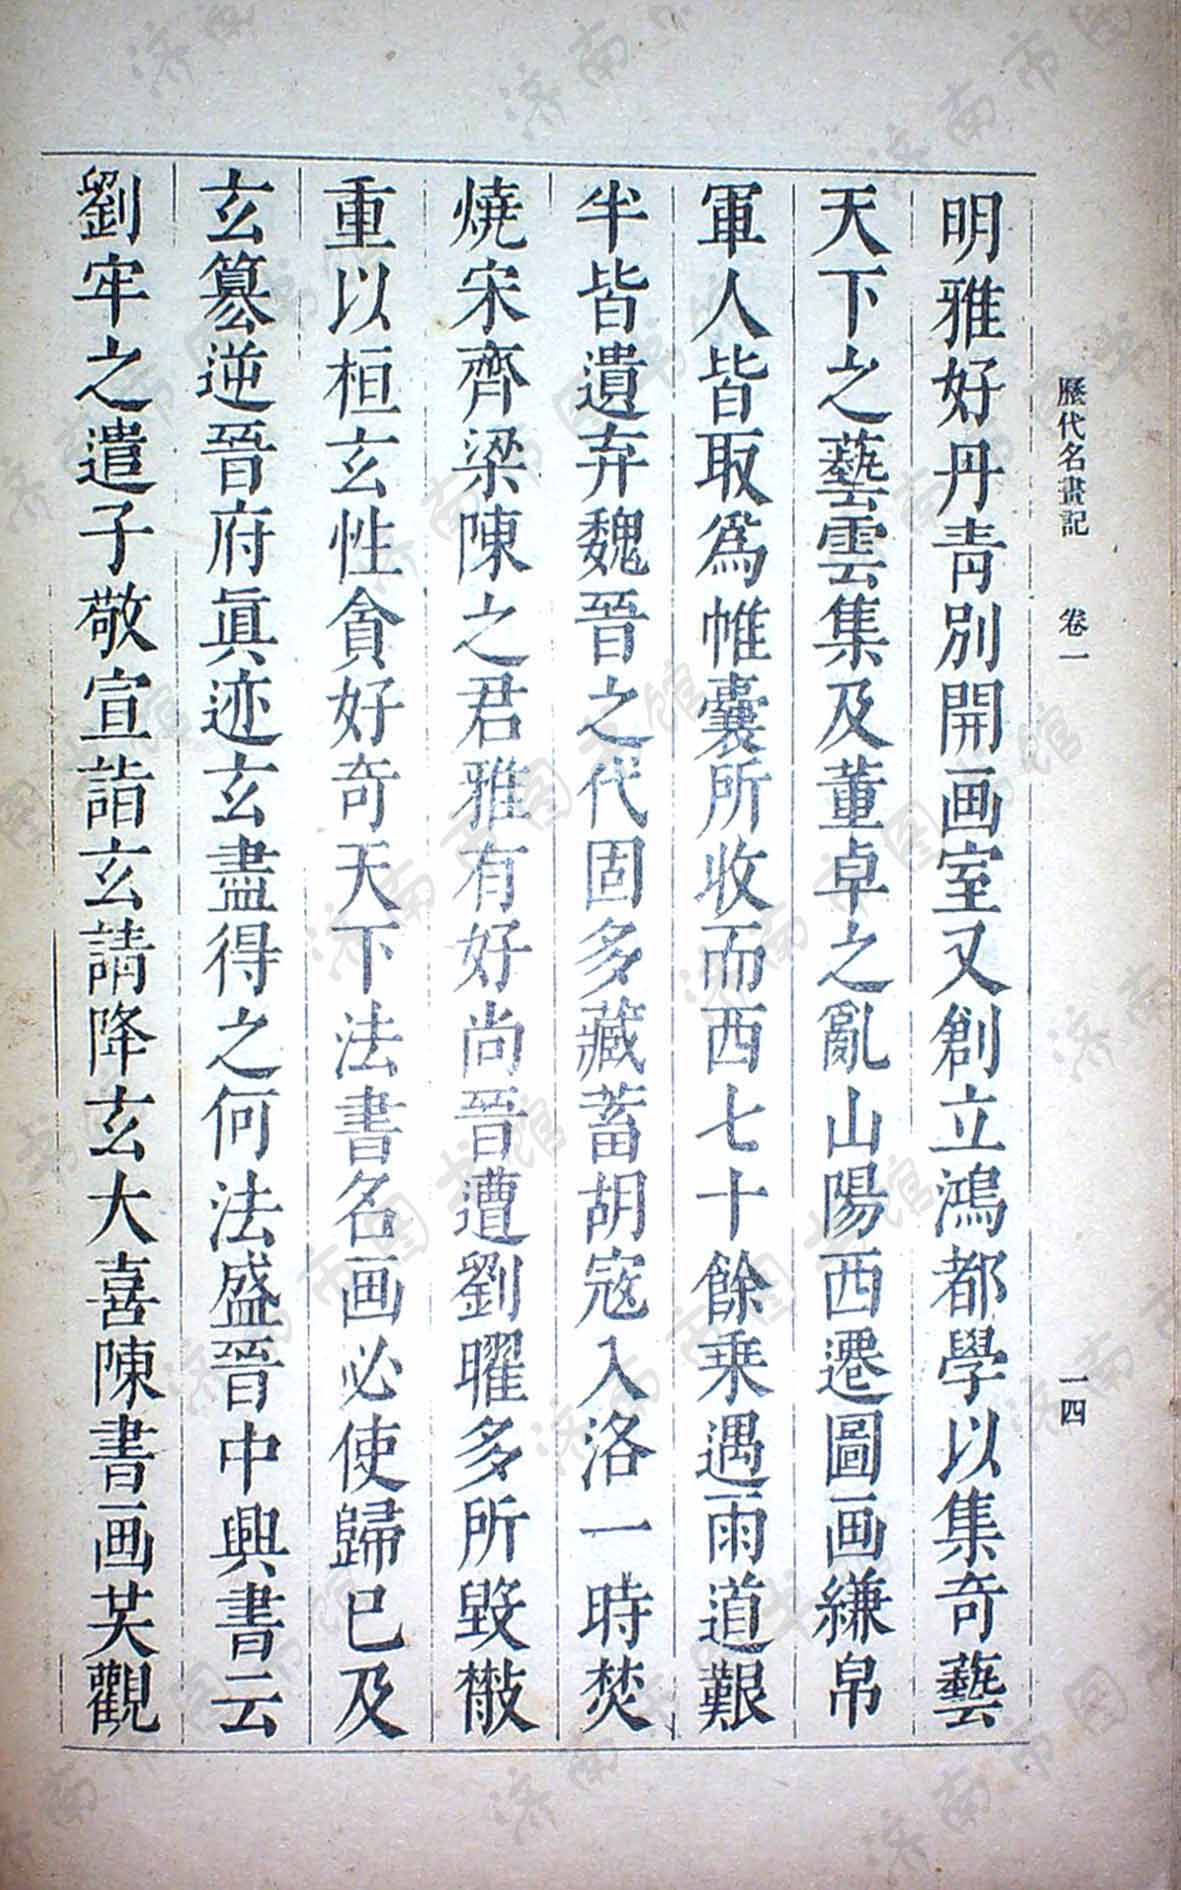 歷代名畫記　卷一　一四
明雅好丹靑別開画室又創立鴻都學以集奇藝
天下之藝雲集及董卓之亂山陽西遷圖画縑帛
軍人皆取爲帷囊所收而西七十餘乗遇雨道艱
半皆遺弃魏晉之代固多藏蓄胡寇入洛一時焚
燒宋齊梁陳之君雅有好尚晉遭劉曜多所毀散
重以桓玄性貪好奇天下法書名画必使歸已及
玄簒逆晉府眞迹玄盡得之何法盛晉中興書云
劉牢之遣子敬宣詣玄請降玄大喜陳書画共觀
济南市图书馆